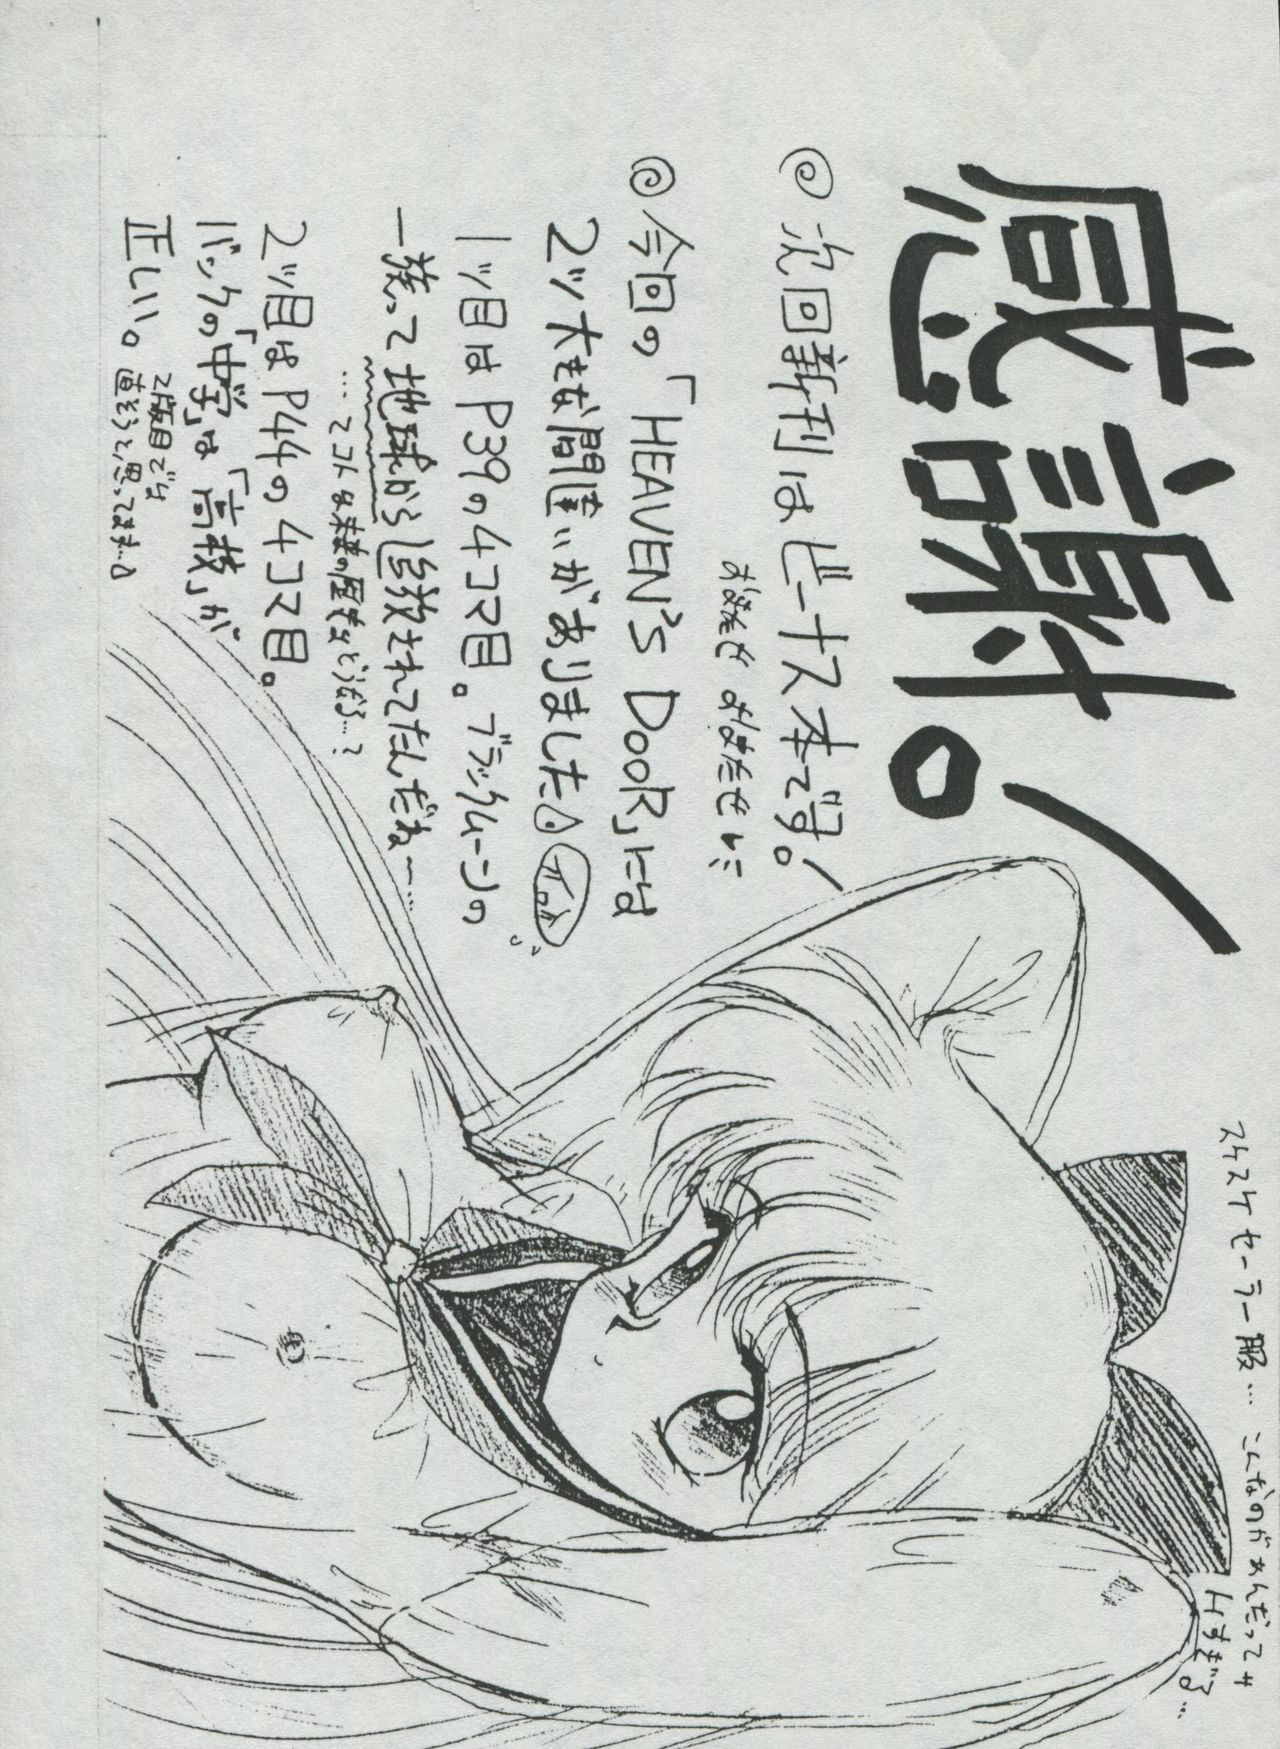 感謝。
◎次回新刊はビーナス本です。
おまたせ
◎今回の「HEAVEN'S DOOR」には
2ツ大きな間違いがありました
1ツ目は P39の4コマ目。ブラックムーンの
一族って地球から追放されてたんだね〜…
…てコトは未来の歴史はどうなる…?
2ツ目は P44の4コマ目。
バックの「中学」は「高校」が
正しい。
2版目では
直そうと思ってます
スケスケセーラー服… こんなのがあんだってサ
Hすぎる…